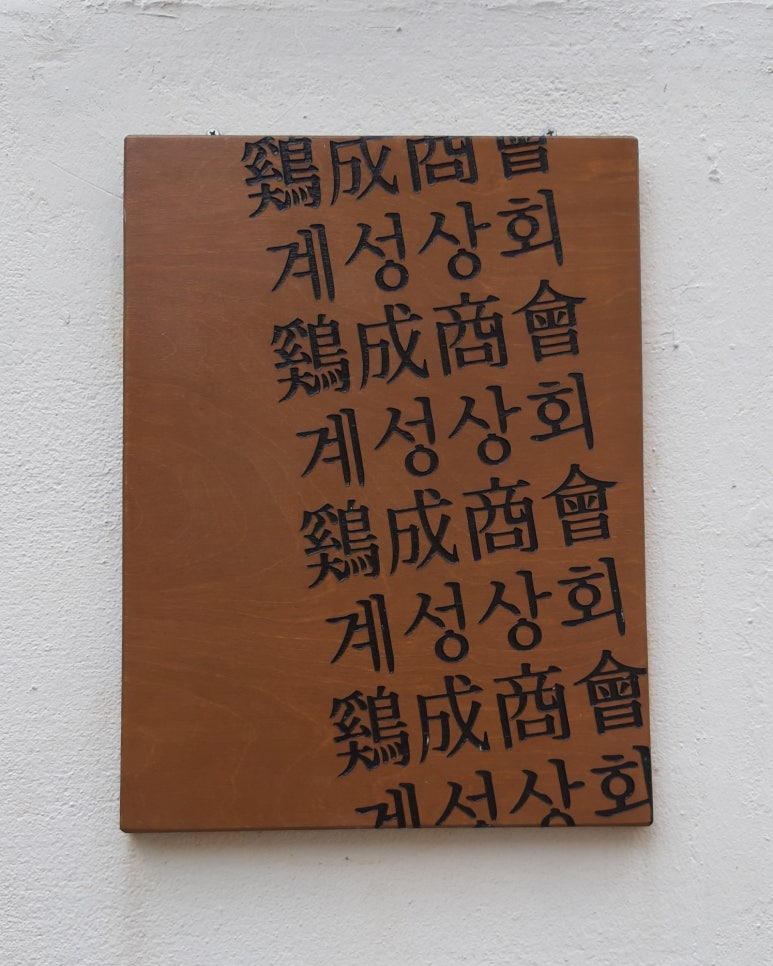 鷄成商會
계성상회
鷄成商會
계성상회
鷄成商會
계성상회
鷄成商會
계성상회